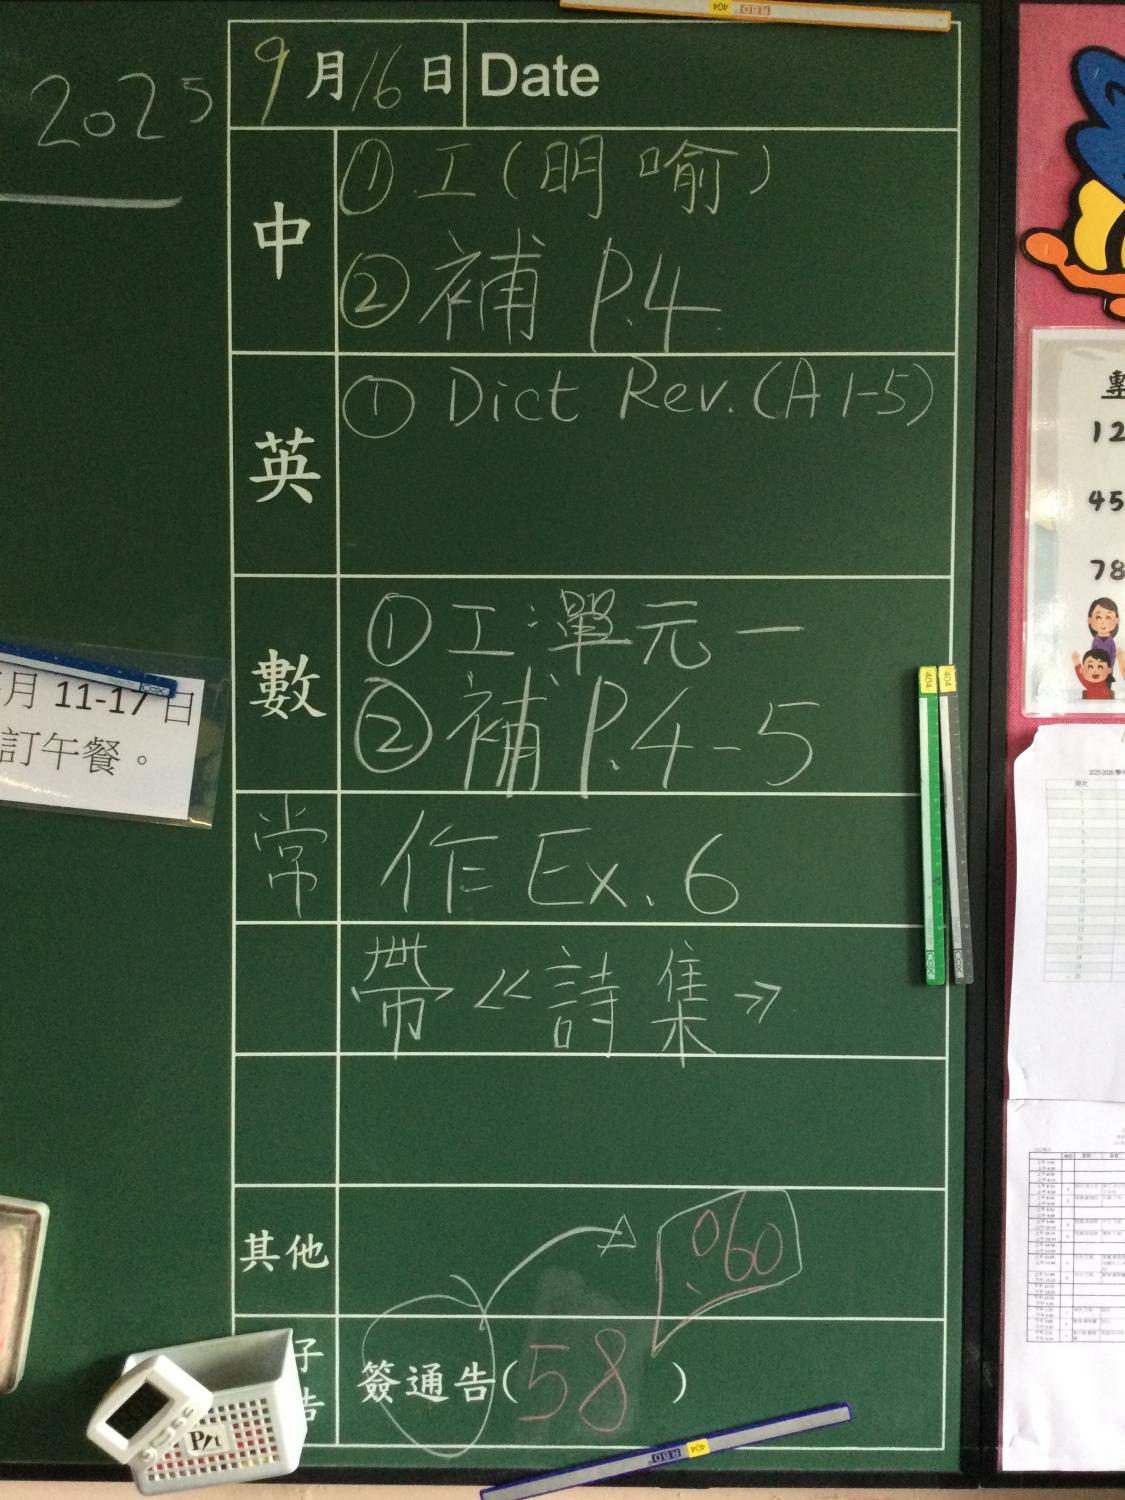 2025
9月16日 Date
中
① 工(明喻)
② 補 P.4
英
① Dict Rev.(A 1-5)
數
① 工:單元一
② 補 P.4-5
常
作 Ex. 6
帶《詩集》
其他
060
簽通告(58)
子
告
月 11-17 日
訂午餐。
12
45
78
2025-2026
404
404
404
404